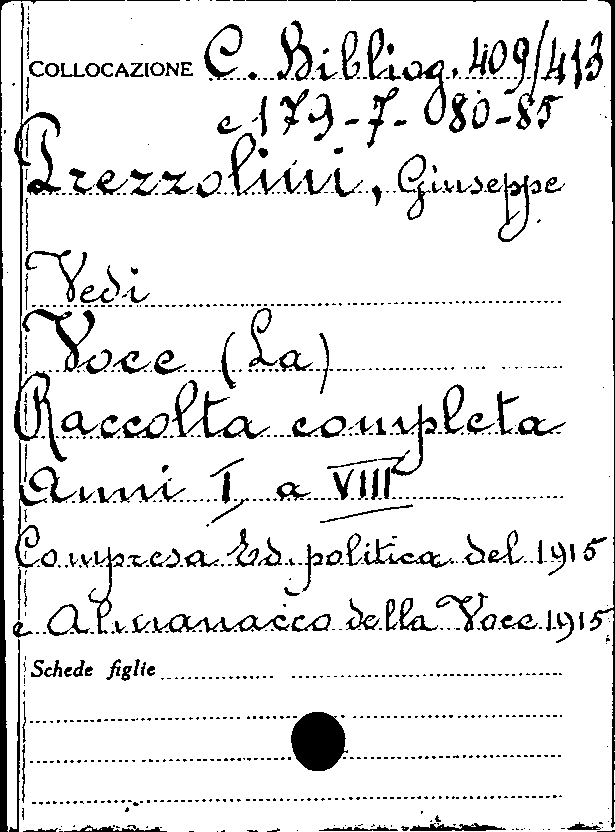 COLLOCAZIONE C. Bibliog. 409/413
e 179-7-080-85
Prezzolini, Giuseppe
Vedi
Voce (La)
Raccolta completa
Anni I a VIII
Compresa Ed. politica del 1915
e Almanacco della Voce 1915
Schede figlie